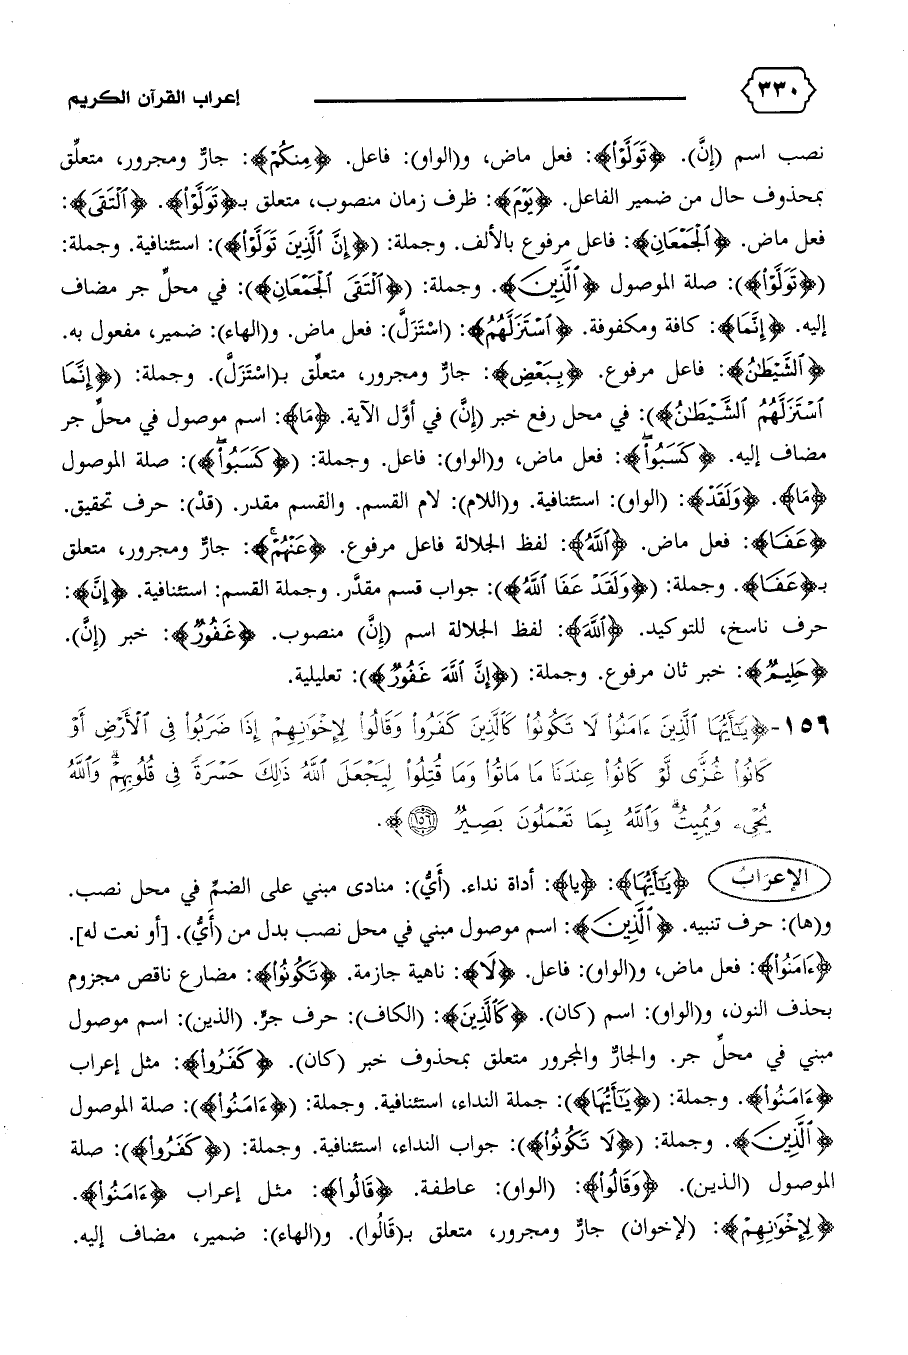 ٣٣٠ إعراب القرآن الكريم
نصب اسم (إِنَّ). ﴿تَوَلَّوْا۟﴾: فعل ماض، و(الواو): فاعل. ﴿مِنكُمْ﴾: جارٌّ ومجرور، متعلِّق
بمحذوف حال من ضمير الفاعل. ﴿يَوْمَ﴾: ظرف زمان منصوب، متعلق بـ﴿تَوَلَّوْا۟﴾. ﴿ٱلْتَقَى﴾:
فعل ماض. ﴿ٱلْجَمْعَانِ﴾: فاعل مرفوع بالألف. وجملة: (﴿إِنَّ ٱلَّذِينَ تَوَلَّوْا۟﴾): استئنافية. وجملة:
(﴿تَوَلَّوْا۟﴾): صلة الموصول ﴿ٱلَّذِينَ﴾. وجملة: (﴿ٱلْتَقَى ٱلْجَمْعَانِ﴾): في محلِّ جر مضاف
إليه. ﴿إِنَّمَا﴾: كافة ومكفوفة. ﴿ٱسْتَزَلَّهُمُ﴾: (اسْتَزَلَّ): فعل ماض. و(الهاء): ضمير، مفعول به.
﴿ٱلشَّيْطَٰنُ﴾: فاعل مرفوع. ﴿بِبَعْضِ﴾: جارٌّ ومجرور، متعلِّق بـ(اسْتَزَلَّ). وجملة: (﴿إِنَّمَا
ٱسْتَزَلَّهُمُ ٱلشَّيْطَٰنُ﴾): في محل رفع خبر (إِنَّ) في أوَّل الآية. ﴿مَا﴾: اسم موصول في محلِّ جر
مضاف إليه. ﴿كَسَبُوا۟ۖ﴾: فعل ماض، و(الواو): فاعل. وجملة: (﴿كَسَبُوا۟ۖ﴾): صلة الموصول
﴿مَا﴾. ﴿وَلَقَدْ﴾: (الواو): استئنافية. و(اللام): لام القسم. والقسم مقدر. (قدْ): حرف تحقيق.
﴿عَفَا﴾: فعل ماض. ﴿ٱللَّهُ﴾: لفظ الجلالة فاعل مرفوع. ﴿عَنْهُمْۚ﴾: جارٌّ ومجرور، متعلق
بـ﴿عَفَا﴾. وجملة: (﴿وَلَقَدْ عَفَا ٱللَّهُ﴾): جواب قسم مقدَّر. وجملة القسم: استئنافية. ﴿إِنَّ﴾:
حرف ناسخ، للتوكيد. ﴿ٱللَّهَ﴾: لفظ الجلالة اسم (إِنَّ) منصوب. ﴿غَفُورٌ﴾: خبر (إنَّ).
﴿حَلِيمٌ﴾: خبر ثان مرفوع. وجملة: (﴿إِنَّ ٱللَّهَ غَفُورٌ﴾): تعليلية.
١٥٦-﴿يَٰٓأَيُّهَا ٱلَّذِينَ ءَامَنُوا۟ لَا تَكُونُوا۟ كَٱلَّذِينَ كَفَرُوا۟ وَقَالُوا۟ لِإِخْوَٰنِهِمْ إِذَا ضَرَبُوا۟ فِى ٱلْأَرْضِ أَوْ
كَانُوا۟ غُزًّى لَّوْ كَانُوا۟ عِندَنَا مَا مَاتُوا۟ وَمَا قُتِلُوا۟ لِيَجْعَلَ ٱللَّهُ ذَٰلِكَ حَسْرَةً فِى قُلُوبِهِمْۗ وَٱللَّهُ
يُحْىِۦ وَيُمِيتُۗ وَٱللَّهُ بِمَا تَعْمَلُونَ بَصِيرٌ ١٥٦﴾.
الإعراب ﴿يَٰٓأَيُّهَا﴾: ﴿يا﴾: أداة نداء. (أَيُّ): منادى مبني على الضمِّ في محل نصب.
و(ها): حرف تنبيه. ﴿ٱلَّذِينَ﴾: اسم موصول مبني في محل نصب بدل من (أَيُّ). [أو نعت له].
﴿ءَامَنُوا۟﴾: فعل ماض، و(الواو): فاعل. ﴿لَا﴾: ناهية جازمة. ﴿تَكُونُوا۟﴾: مضارع ناقص مجزوم
بحذف النون، و(الواو): اسم (كان). ﴿كَٱلَّذِينَ﴾: (الكاف): حرف جرٍّ. (الذين): اسم موصول
مبني في محلِّ جر. والجارُّ والمجرور متعلق بمحذوف خبر (كان). ﴿كَفَرُوا۟﴾: مثل إعراب
﴿ءَامَنُوا۟﴾. وجملة: (﴿يَٰٓأَيُّهَا﴾): جملة النداء، استئنافية. وجملة: (﴿ءَامَنُوا۟﴾): صلة الموصول
﴿ٱلَّذِينَ﴾. وجملة: (﴿لَا تَكُونُوا۟﴾): جواب النداء، استئنافية. وجملة: (﴿كَفَرُوا۟﴾): صلة
الموصول (الذين). ﴿وَقَالُوا۟﴾: (الواو): عاطفة. ﴿قَالُوا۟﴾: مثل إعراب ﴿ءَامَنُوا۟﴾.
﴿لِإِخْوَٰنِهِمْ﴾: (لإخوان) جارٌّ ومجرور، متعلق بـ(قَالُوا). و(الهاء): ضمير، مضاف إليه.